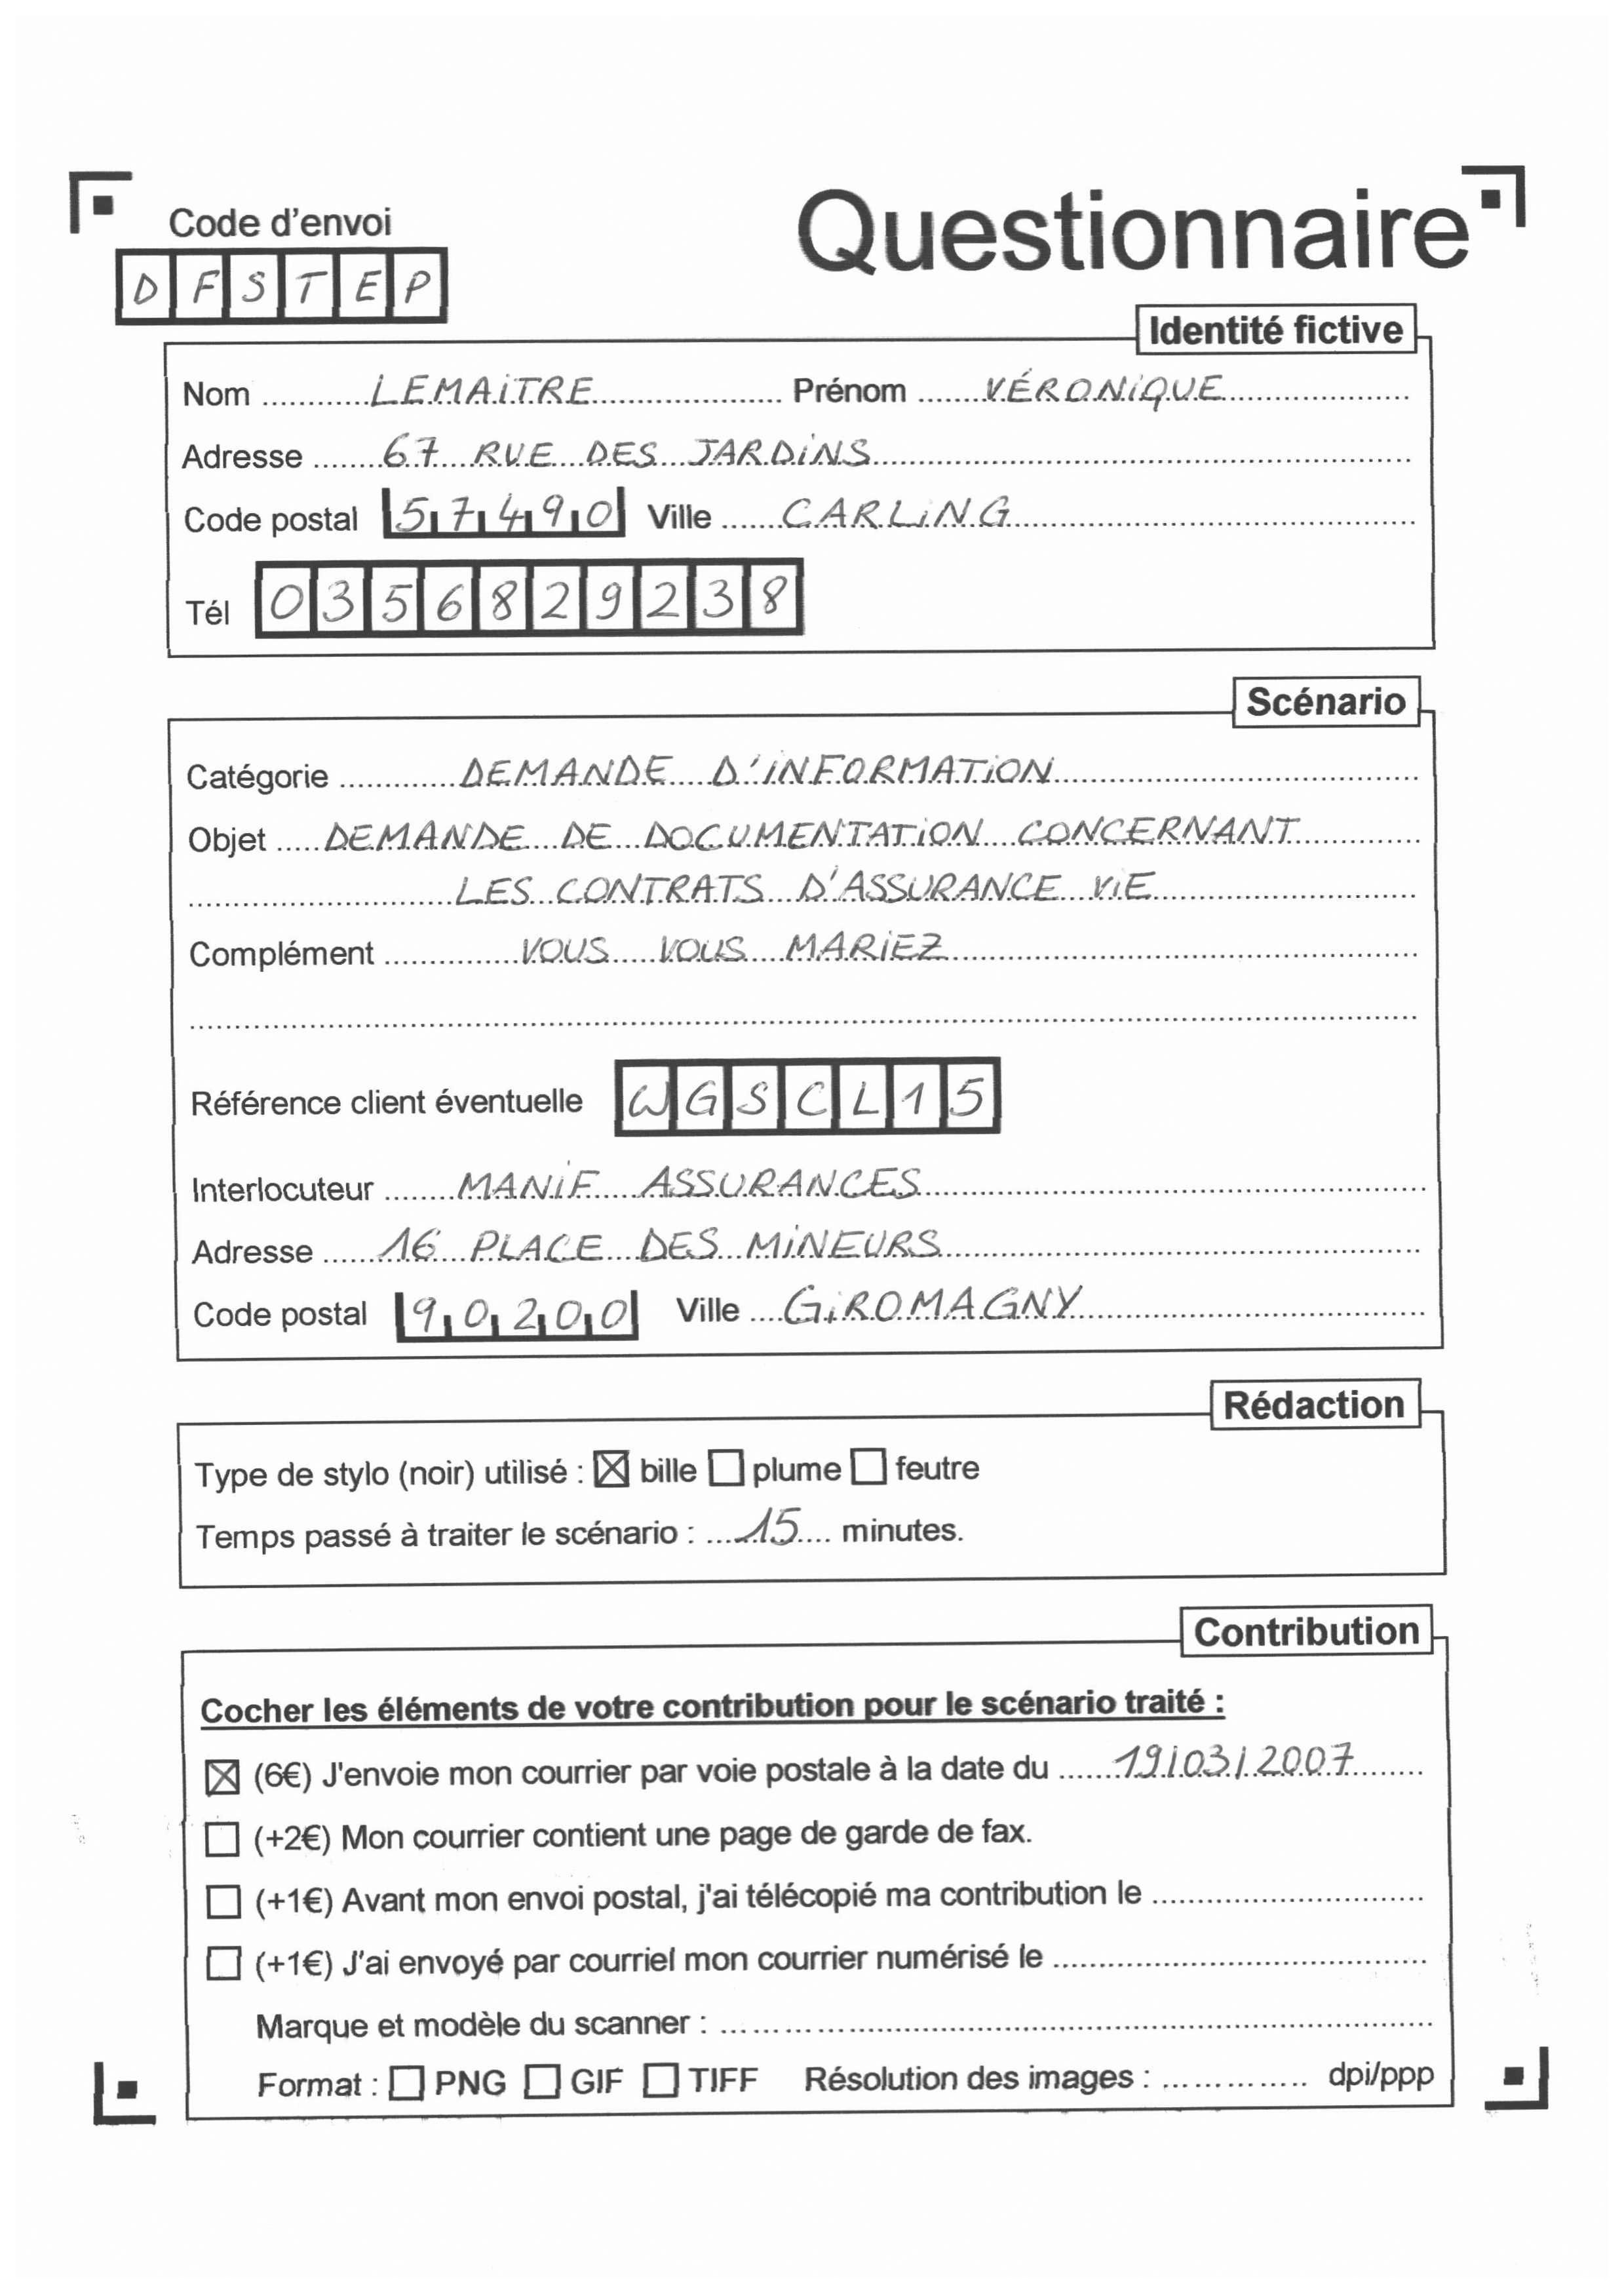 Questionnaire
Code d'envoi
DFSTEP
Identité fictive
Nom ........... LEMAITRE ................... Prénom ....... VÉRONIQUE ...................
Adresse ....... 67 RUE DES JARDINS ...................
Code postal 57490 Ville ...... CARLING ...................
Tél 0356829238
Scénario
Catégorie ............ DEMANDE D'INFORMATION ...................
Objet ..... DEMANDE DE DOCUMENTATION CONCERNANT ............
................... LES CONTRATS D'ASSURANCE VIE ...................
Complément ............. VOUS VOUS MARIEZ ...................
Référence client éventuelle WGSCL15
Interlocuteur ....... MANIF ASSURANCES ...................
Adresse ...... 16 PLACE DES MINEURS ...................
Code postal 90200 Ville .... GIROMAGNY ...................
Rédaction
Type de stylo (noir) utilisé : ☒ bille ☐ plume ☐ feutre
Temps passé à traiter le scénario : ... 15 .... minutes.
Contribution
Cocher les éléments de votre contribution pour le scénario traité :
☒ (6€) J'envoie mon courrier par voie postale à la date du ...... 19/03/2007 .......
☐ (+2€) Mon courrier contient une page de garde de fax.
☐ (+1€) Avant mon envoi postal, j'ai télécopié ma contribution le ...................
☐ (+1€) J'ai envoyé par courriel mon courrier numérisé le ...................
Marque et modèle du scanner : ...................
Format : ☐ PNG ☐ GIF ☐ TIFF Résolution des images : .............. dpi/ppp